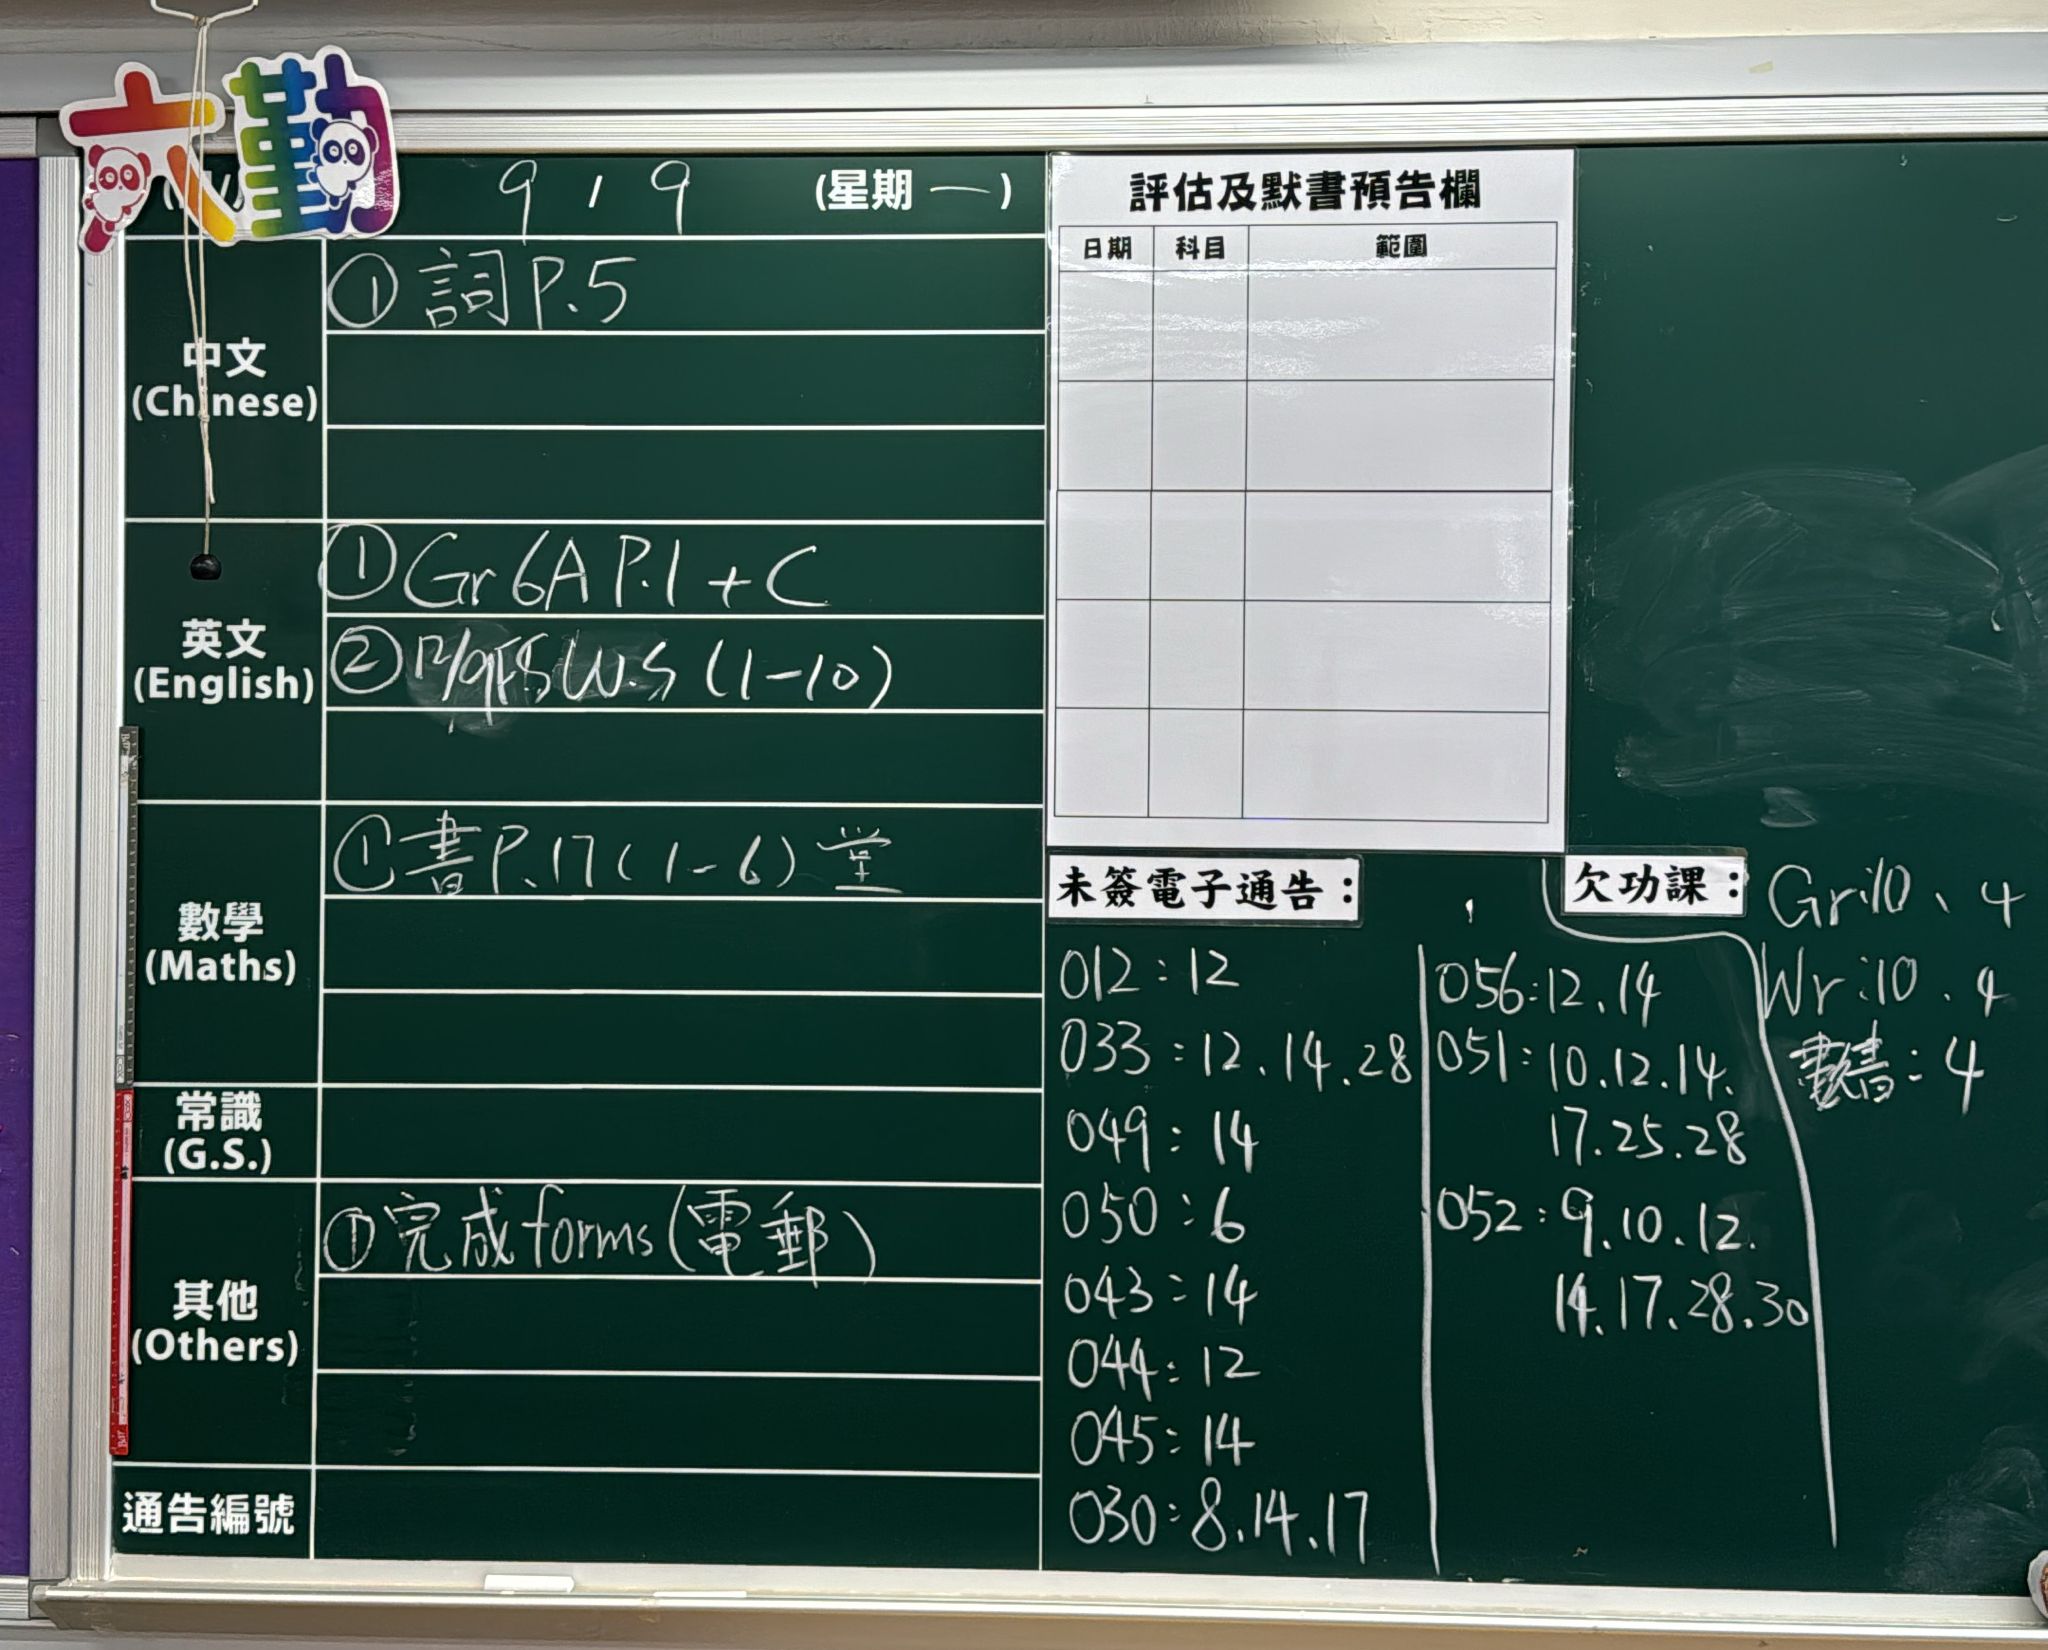 六勤
9 / 9 (星期一)
中文
(Chinese)
① 詞 P.5
英文
(English)
① Gr 6A P.1 + C
② 12/9 FS W.S (1-10)
數學
(Maths)
① 書 P.17 (1-6) 堂
常識
(G.S.)
其他
(Others)
① 完成 forms (電郵)
通告編號
評估及默書預告欄
日期 科目 範圍
未簽電子通告：
012 : 12
033 : 12.14.28
049 : 14
050 : 6
043 : 14
044 : 12
045 : 14
030 : 8.14.17
056 : 12.14
051 : 10.12.14.
17.25.28
052 : 9.10.12.
14.17.28.30
欠功課：
Gr : 10、4
Wr : 10、4
書 : 4